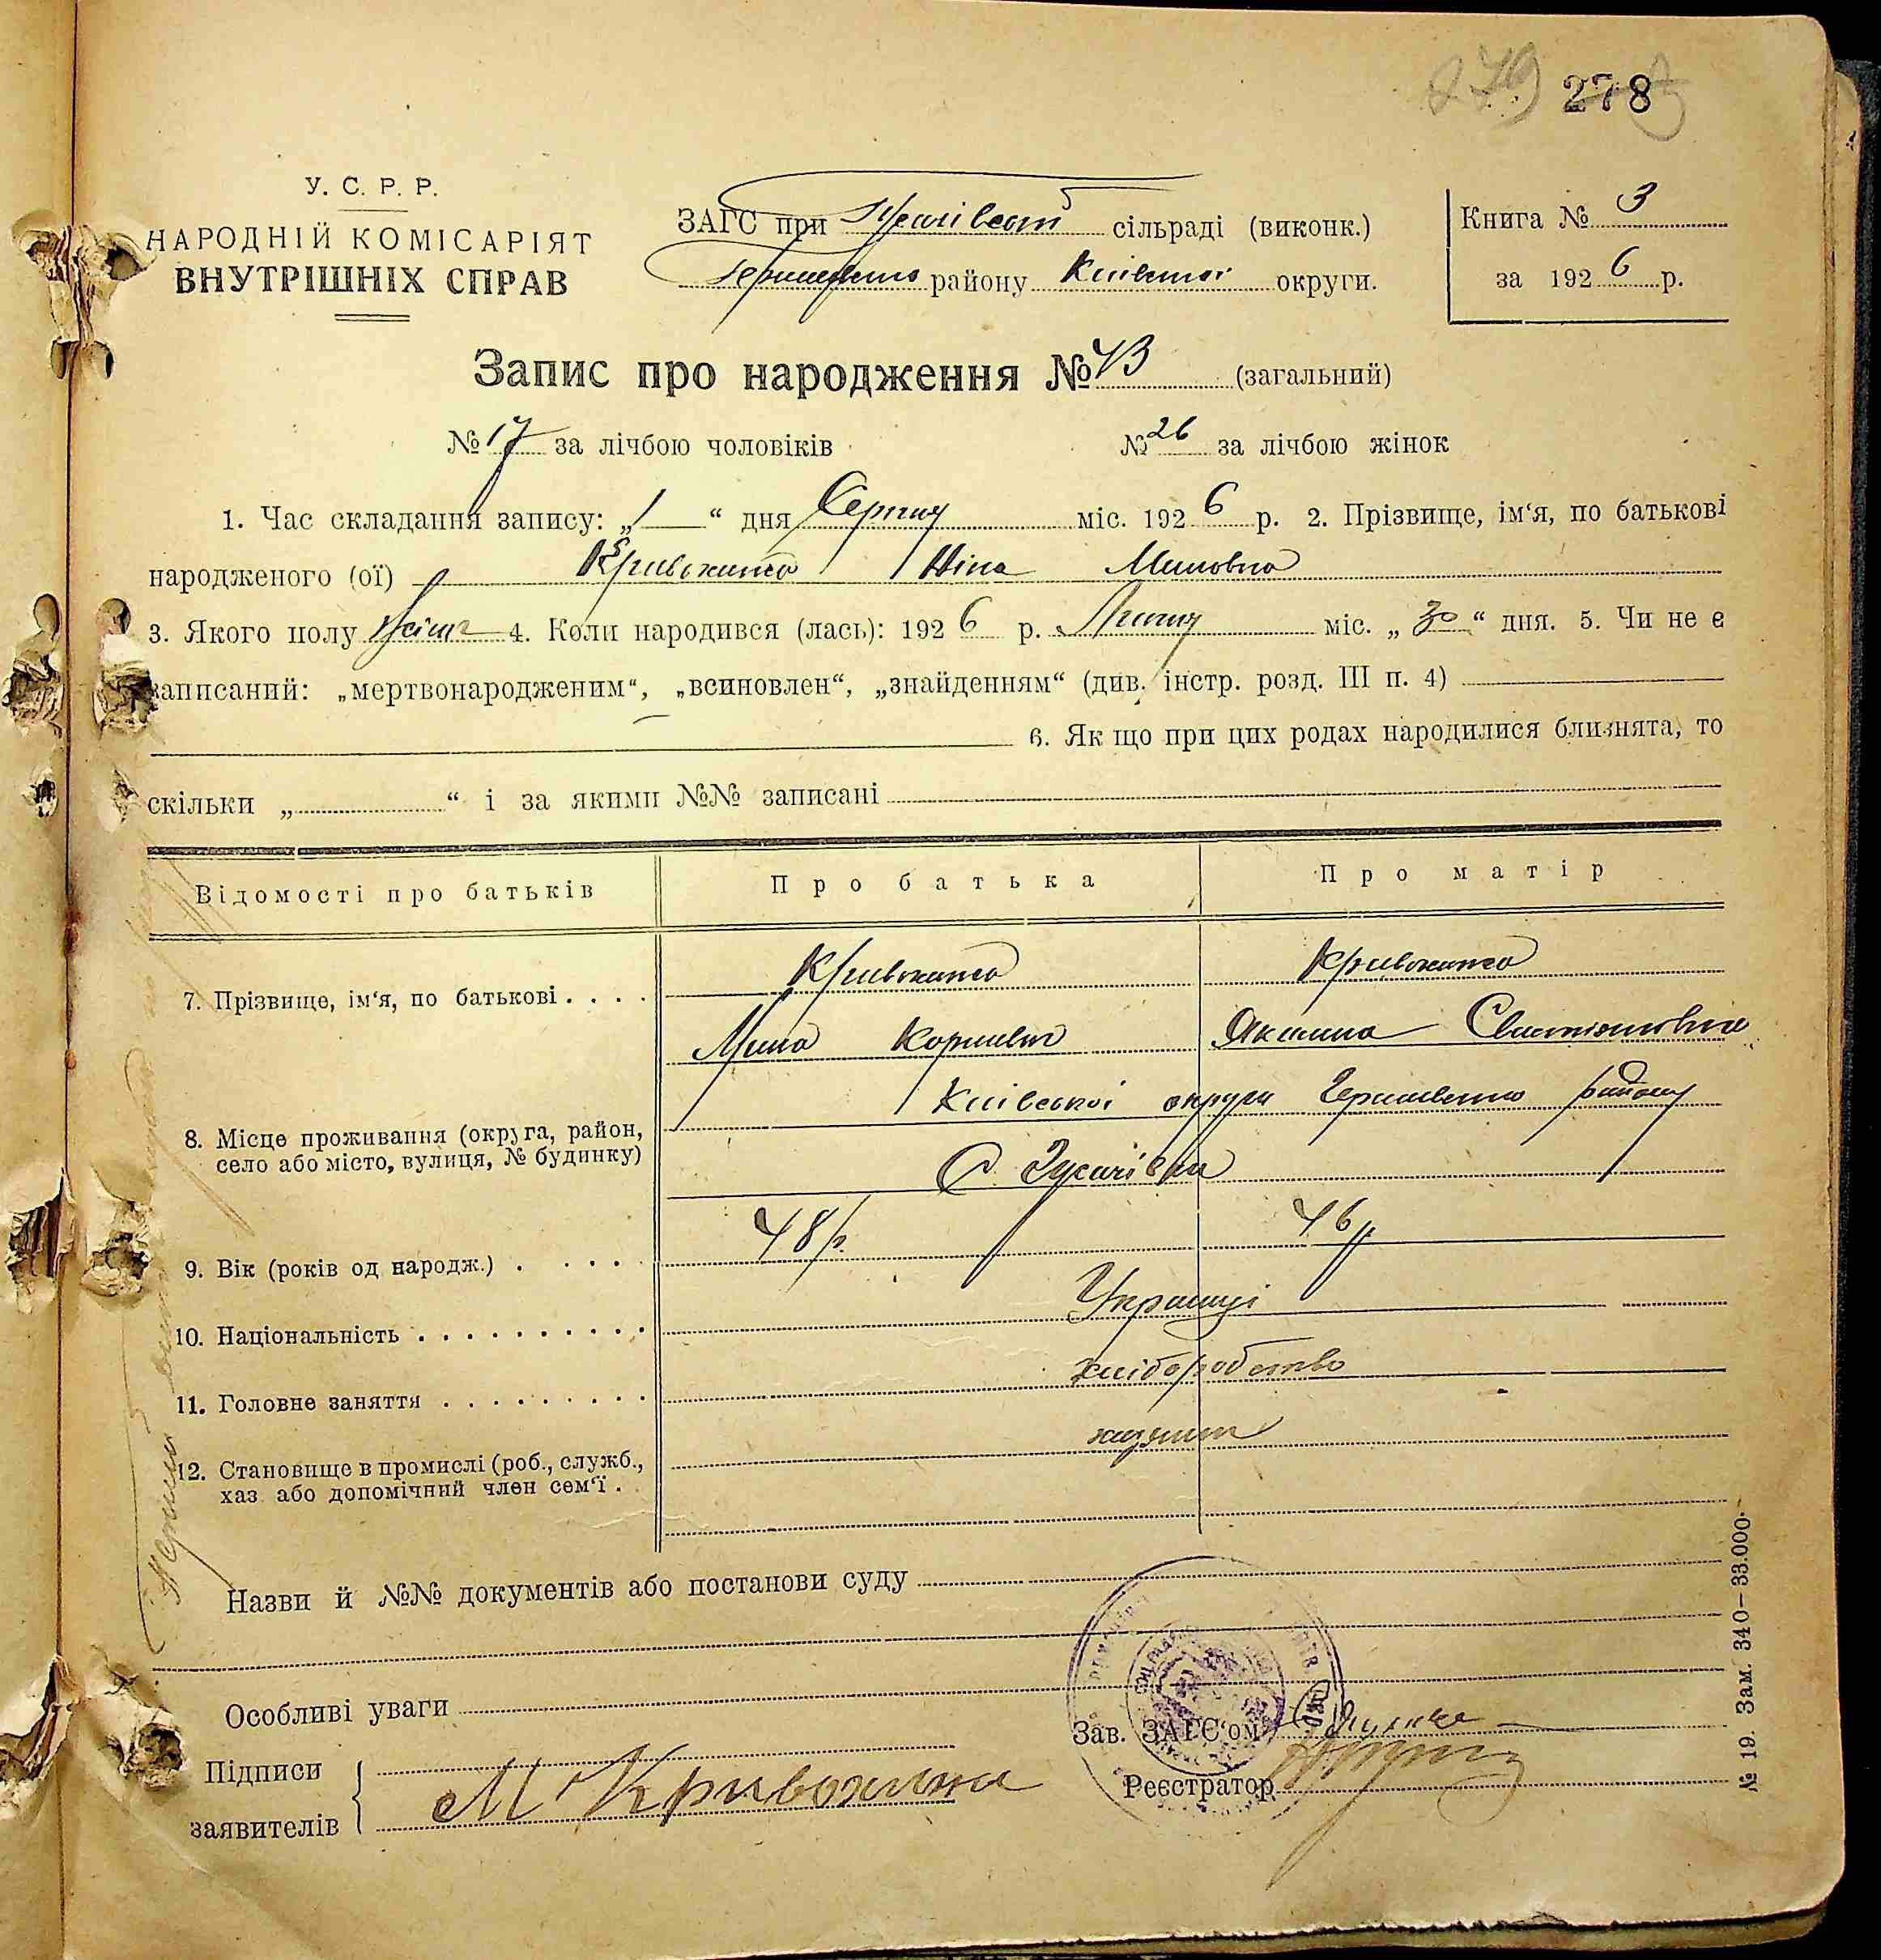 279 278
У. С. Р. Р.
НАРОДНІЙ КОМІСАРІЯТ
ВНУТРІШНІХ СПРАВ
ЗАГС при сільраді (виконк.)
району Київської округи.
Книга № 3
за 1926 р.
Запис про народження № 43 (загальний)
№ 17 за лічбою чоловіків № 26 за лічбою жінок
1. Час складання запису: „1“ дня Серпня міс. 1926 р. 2. Прізвище, ім‘я, по батькові
народженого (ої) Кривохижа Ніна Миновна
3. Якого полу жіноч 4. Коли народився (лась): 1926 р. Липня міс. „30“ дня. 5. Чи не є
записаний: „мертвонародженим“, „всиновлен“, „знайденням“ (див. інстр. розд. III п. 4)
6. Як що при цих родах народилися близнята, то
скільки „ “ і за якими №№ записані
Відомості про батьків Про батька Про матір
7. Прізвище, ім‘я, по батькові . . . . Кривохижа Кривохижа
Мина Корніевич
Київської округи району
8. Місце проживання (округа, район,
село або місто, вулиця, № будинку)
С. Гусачівка
9. Вік (років од народж.) . . . . . 48 р. 46 р
10. Національність . . . . . . . . . . Українці
11. Головне заняття . . . . . . . . . хліборобство
12. Становище в промислі (роб., служб.,
хаз. або допомічний член сем‘ї .
Назви й №№ документів або постанови суду
Особливі уваги
Зав. ЗАГС‘ом
Підписи
заявителів М Кривохижа
Реєстратор
№ 19. Зам. 340—33.000.